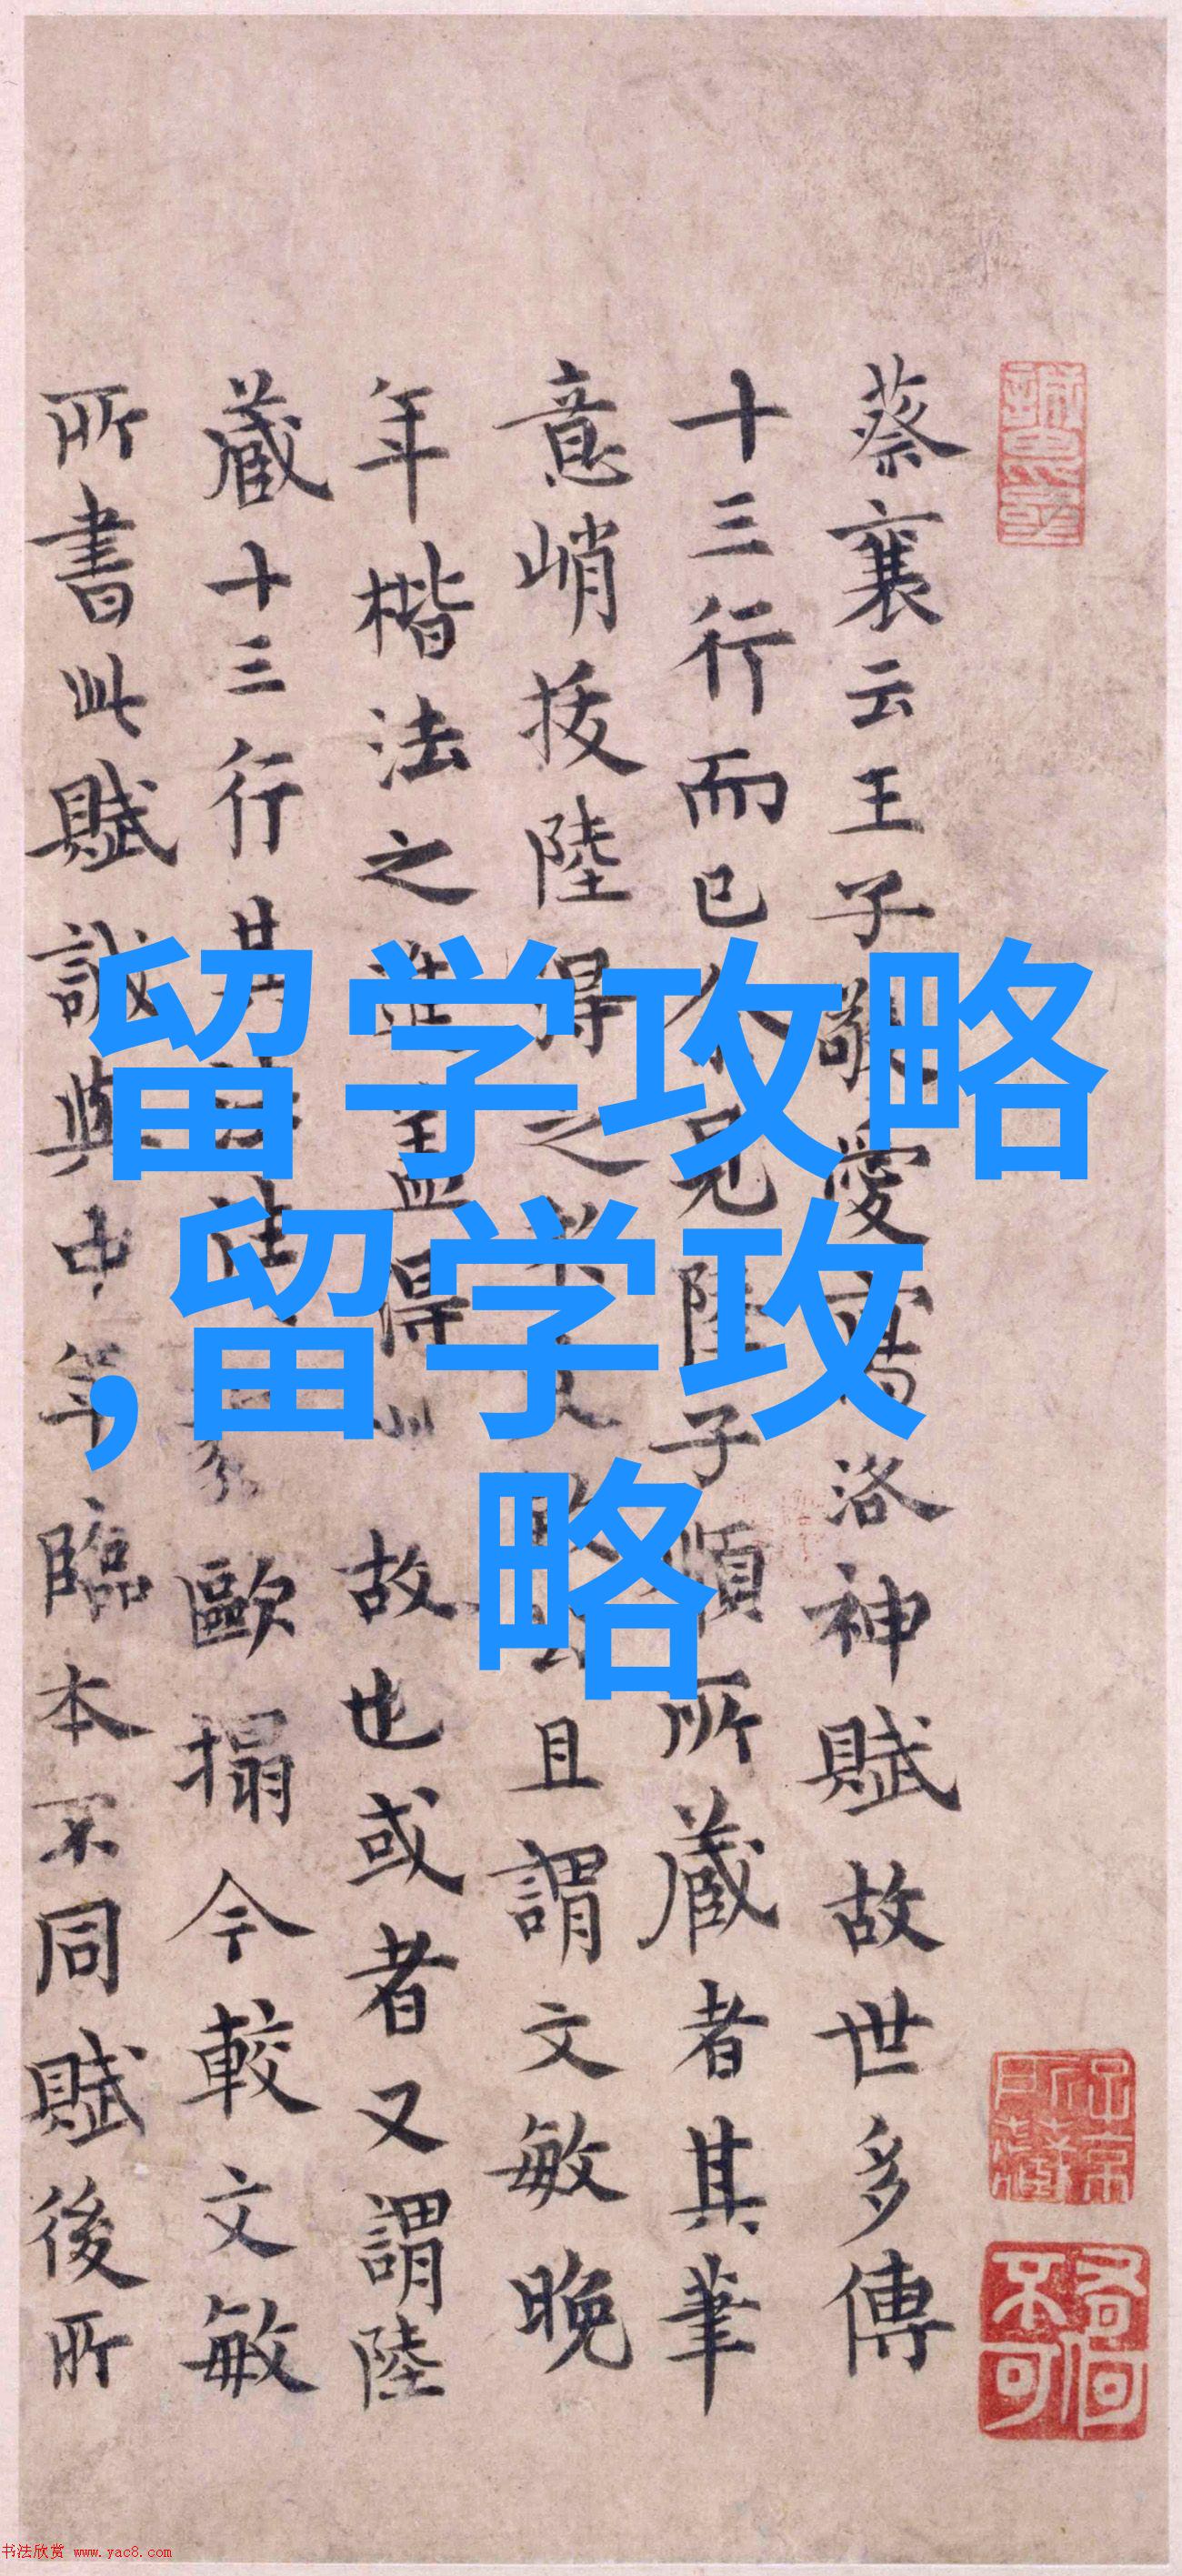 蔡襄云王子敬愛寫洛神賦故世多傳
十三行而已見陸子順所藏者其筆
意峭拔陸得之且謂文敏晚
年楷法之進蓋得此故也或者又謂陸
藏十三行其歐搨今較文敏
所書此賦誠與中年臨本不同賦後所
留学攻略
,留学攻
略
书法欣赏 www.yac8.com